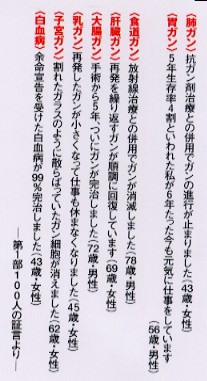 〈肺ガン〉抗ガン剤治療との併用でガンの進行が止まりました(43歳・女性)
〈胃ガン〉5年生存率4割といわれた私が6年たった今も元気に仕事をしています
(56歳・男性)
〈食道ガン〉放射線治療との併用でガンが消滅しました(78歳・男性)
〈肝臓ガン〉再発を繰り返すガンが順調に回復しています(69歳・女性)
〈大腸ガン〉手術から5年、ついにガンが完治しました(72歳・男性)
〈乳ガン〉再発したガンが小さくなって仕事も休まなくなりました(45歳・女性)
〈子宮ガン〉割れたガラスのように散らばっていたガン細胞が消えました(62歳・女性)
〈白血病〉余命宣告を受けた白血病が99%完治しました(43歳・女性)
―第1部100人の証言より―